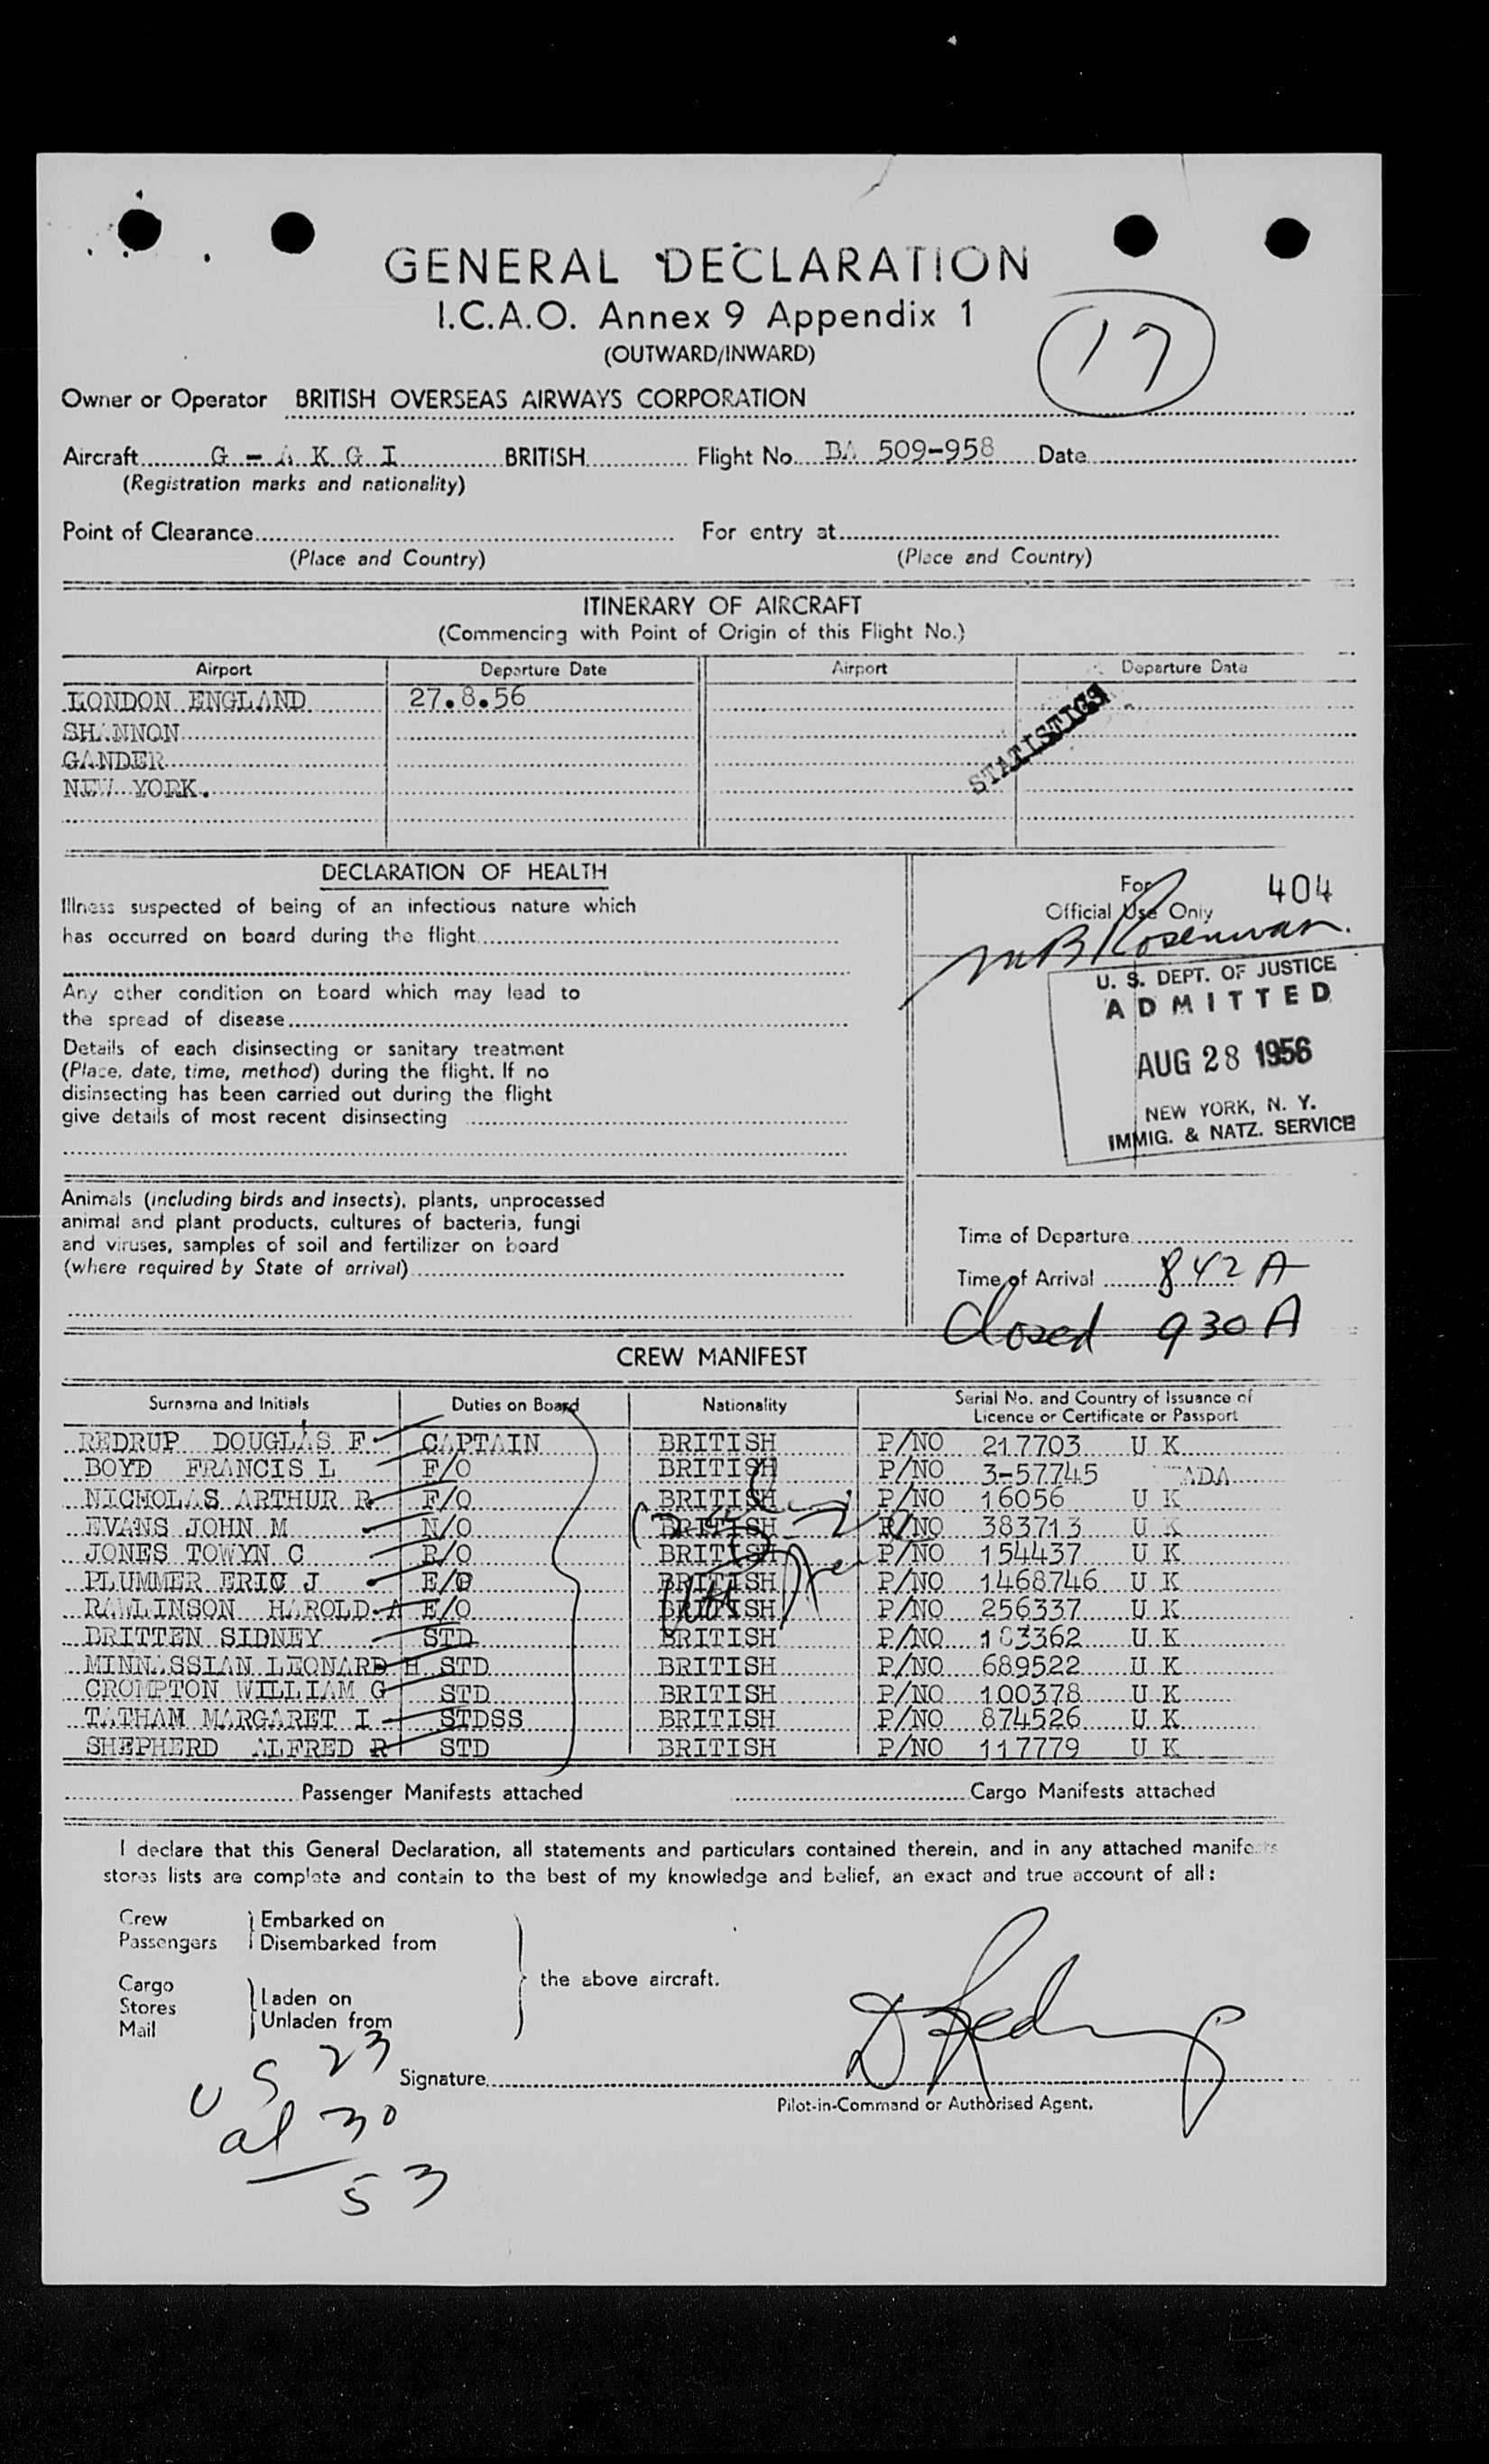 GENERAL DECLARATION
I.C.A.O. Annex 9 Appendix 1
(OUTWARD/INWARD)
17
Owner or Operator BRITISH OVERSEAS AIRWAYS CORPORATION
Aircraft G - A K G I BRITISH Flight No. BA 509-958 Date
(Registration marks and nationality)
Point of Clearance For entry at
(Place and Country) (Place and Country)
ITINERARY OF AIRCRAFT
(Commencing with Point of Origin of this Flight No.)
Airport Departure Date Airport Departure Date
LONDON ENGLAND 27.8.56
SHANNON
GANDER
NEW YORK.
STATISTICS
DECLARATION OF HEALTH
Illness suspected of being of an infectious nature which
has occurred on board during the flight
Any other condition on board which may lead to
the spread of disease
Details of each disinsecting or sanitary treatment
(Place, date, time, method) during the flight. If no
disinsecting has been carried out during the flight
give details of most recent disinsecting
For
Official Use Only
404
U. S. DEPT. OF JUSTICE
ADMITTED
AUG 28 1956
NEW YORK, N. Y.
IMMIG. & NATZ. SERVICE
Animals (including birds and insects), plants, unprocessed
animal and plant products, cultures of bacteria, fungi
and viruses, samples of soil and fertilizer on board
(where required by State of arrival)
Time of Departure
Time of Arrival 842 A
Closed 930 A
CREW MANIFEST
Surname and Initials Duties on Board Nationality Serial No. and Country of Issuance of
Licence or Certificate or Passport
REDRUP DOUGLAS F CAPTAIN BRITISH P/NO 217703 U K
BOYD FRANCIS L F/O BRITISH P/NO 3-57745
NICHOLAS ARTHUR R F/O BRITISH P/NO 16056 U K
EVANS JOHN M N/O BRITISH P/NO 383713 U K
JONES TOWYN C R/O BRITISH P/NO 154437 U K
PLUMMER ERIC J E/O BRITISH P/NO 1468746 U K
RAWLINSON HAROLD A E/O BRITISH P/NO 256337 U K
BRITTEN SIDNEY STD BRITISH P/NO 183362 U K
MINNASSIAN LEONARD H STD BRITISH P/NO 689522 U K
CROMPTON WILLIAM G STD BRITISH P/NO 100378 U K
TATHAM MARGARET I STDSS BRITISH P/NO 874526 U K
SHEPHERD ALFRED R STD BRITISH P/NO 117779 U K
Passenger Manifests attached Cargo Manifests attached
I declare that this General Declaration, all statements and particulars contained therein, and in any attached manifests
stores lists are complete and contain to the best of my knowledge and belief, an exact and true account of all:
Crew Embarked on
Passengers Disembarked from
the above aircraft.
Cargo
Stores Laden on
Mail Unladen from
U S 23
al 30
53
Signature D Redrup
Pilot-in-Command or Authorised Agent.